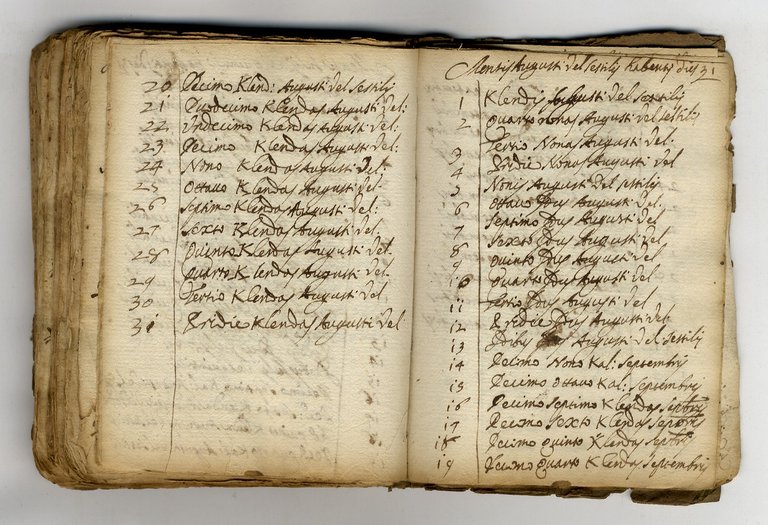 20 Decimo Klend: Augusti vel sestilij
21 Duodecimo Klendas Augusti vel:
22 Vndecimo Klendas Augusti vel:
23 Decimo Klendas Augusti vel:
24 Nono Klendas Augusti vel:
25 Ottauo Klendas Augusti vel:
26 Septimo Klendas Augusti vel:
27 Sexto Klendas Augusti vel:
28 Quinto Klendas Augusti vel.
29 Quarto Klendas Augusti vel.
30 Tertio Klendas Augusti vel
31 Pridie Klendas Augusti vel
Mensis Augusti vel sestilij habentis dies 31
1 Klendis Augusti vel sextilis
2 Quarto nonas Augusti vel sestilis
3 Tertio Nonas Augusti vel.
4 Pridie Nonas Augusti vel
5 Nonis Augusti vel sestilis
6 Ottauo Idus Augusti vel
7 Septimo Idus Augusti vel
8 Sexto Idus Augusti vel
9 Quinto Idus Augusti vel
10 Quarto Idus Augusti vel
11 Tertio Idus Augusti vel
12 Pridie Idus Augusti vel.
13 Idibus Augusti vel sestilij
14 Decimo Nono Kal: Septembris
15 Decimo ottauo Kal: Septembris
16 Decimo septimo Klendas Septbris
17 Decimo Sexto Klendas Septbris
18 Decimo quinto Klendas Septbris
19 Decimo quarto Klendas Septembris